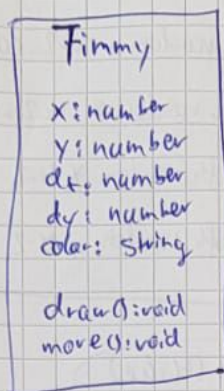 Timmy
x: number
y: number
dx: number
dy: number
color: string
draw(): void
move(): void